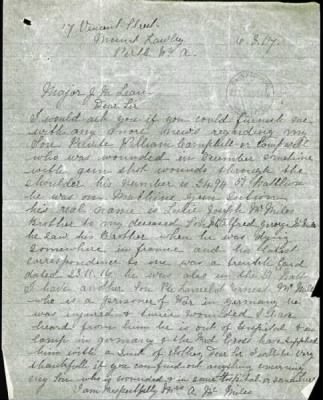 17 Vincent Street
Mount Lawley
Perth W A
6.3.17
Major J M Lean
Dear Sir
I would ask you if you could furnish me
with any more news regarding my
Son Private William Campbell
who was wounded in December
with gun shot wounds through the
shoulder his number is 3494 51 Battlion
he was on machine gun section
his real name is Leslie Joseph Mc Miles
Brother to my deceased Son Alfred George Mc Miles
he saw his Brother when he was dying
somewhere in france and his latest
correspondence to me was a french card
dated 23.11.16 he was also in the 51 Batt
I have another Son Ernest Mc Miles
who is a prisoner of War in germany he
was injured & twice wounded I have
heard from him he is out of hospital & in
camp in germany & the Red Cross have supplied
him with a suit of clothes. Dear Sir I will be very
thankfull if you can find out anything concerning
my Son who is wounded & in some hospital or
I am Respectfully Mrs A Mc Miles